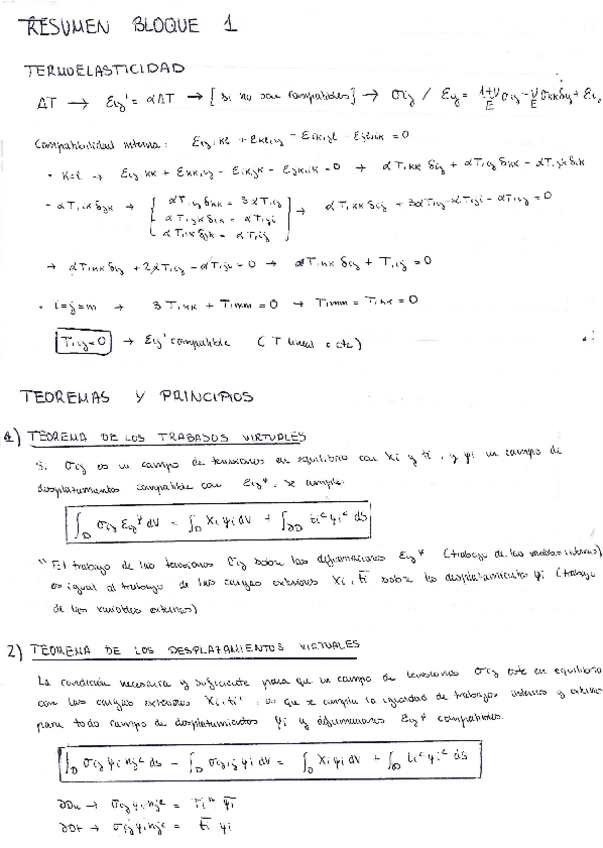 RESUMEN BLOQUE 1
TERMOELASTICIDAD
ΔT → Eij' = αΔT → [si no son compatibles] → σij / Eij = 1+ν/E σij - ν/E σkk δij + Ei
Compatibilidad interna: Eij,kl + Ekl,ij - Eik,jl - Ejl,ik = 0
• k=l → Eij,kk + Ekk,ij - Eik,jk - Ejk,ik = 0 → αT,kk δij + αT,ij δkk - αT,jk δik
- αT,ik δjk → { αT,ij δkk = 3αT,ij
αT,jk δik = αT,ji
αT,ik δjk = αT,ij } → αT,kk δij + 3αT,ij - αT,ji - αT,ij = 0
→ αT,kk δij + 2αT,ij - αT,ji = 0 → αT,kk δij + T,ij = 0
• i=j=m → 3T,kk + T,mm = 0 → T,mm = T,kk = 0
T,ij = 0 → Eij' compatible (T lineal o cte)
TEOREMAS Y PRINCIPIOS
1) TEOREMA DE LOS TRABAJOS VIRTUALES
Si σij es un campo de tensiones en equilibrio con Xi y ti, y ψi un campo de
desplazamientos compatible con Eij*, se cumple:
∫D σij Eij* dV = ∫D Xi ψi dV + ∫∂D ti^c ψi^c dS
"El trabajo de las tensiones σij sobre las deformaciones Eij* (trabajo de las variables internas)
es igual al trabajo de las cargas exteriores Xi, ti sobre los desplazamientos ψi (trabajo
de las variables externas)
2) TEOREMA DE LOS DESPLAZAMIENTOS VIRTUALES
La condición necesaria y suficiente para que un campo de tensiones σij esté en equilibrio
con las cargas exteriores Xi, ti^c, es que se cumpla la igualdad de trabajos internos y externos
para todo campo de desplazamientos ψi y deformaciones Eij* compatibles.
∫D σij ψi nj^c dS - ∫D σij,j ψi dV = ∫D Xi ψi dV + ∫∂D ti^c ψi^c dS
∂Du → σij ψi nj^c = Ti^u ψi
∂Dt → σij ψi nj^c = ti ψi